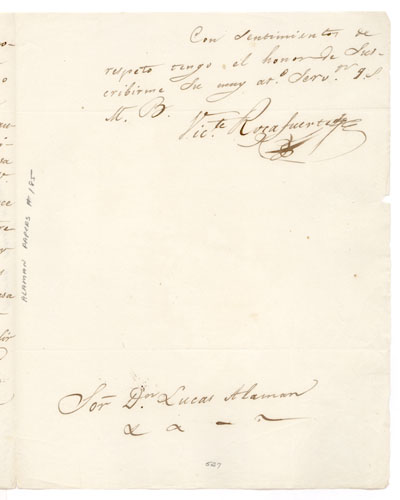 Con sentimientos de
respeto tengo el honor de Sus-
cribirme Su muy at.º Serv.ºr q. S
M. B.
Vic.te Rocafuerte
Sor. Dn. Lucas Alaman
ALAMAN PAPERS # 185
527